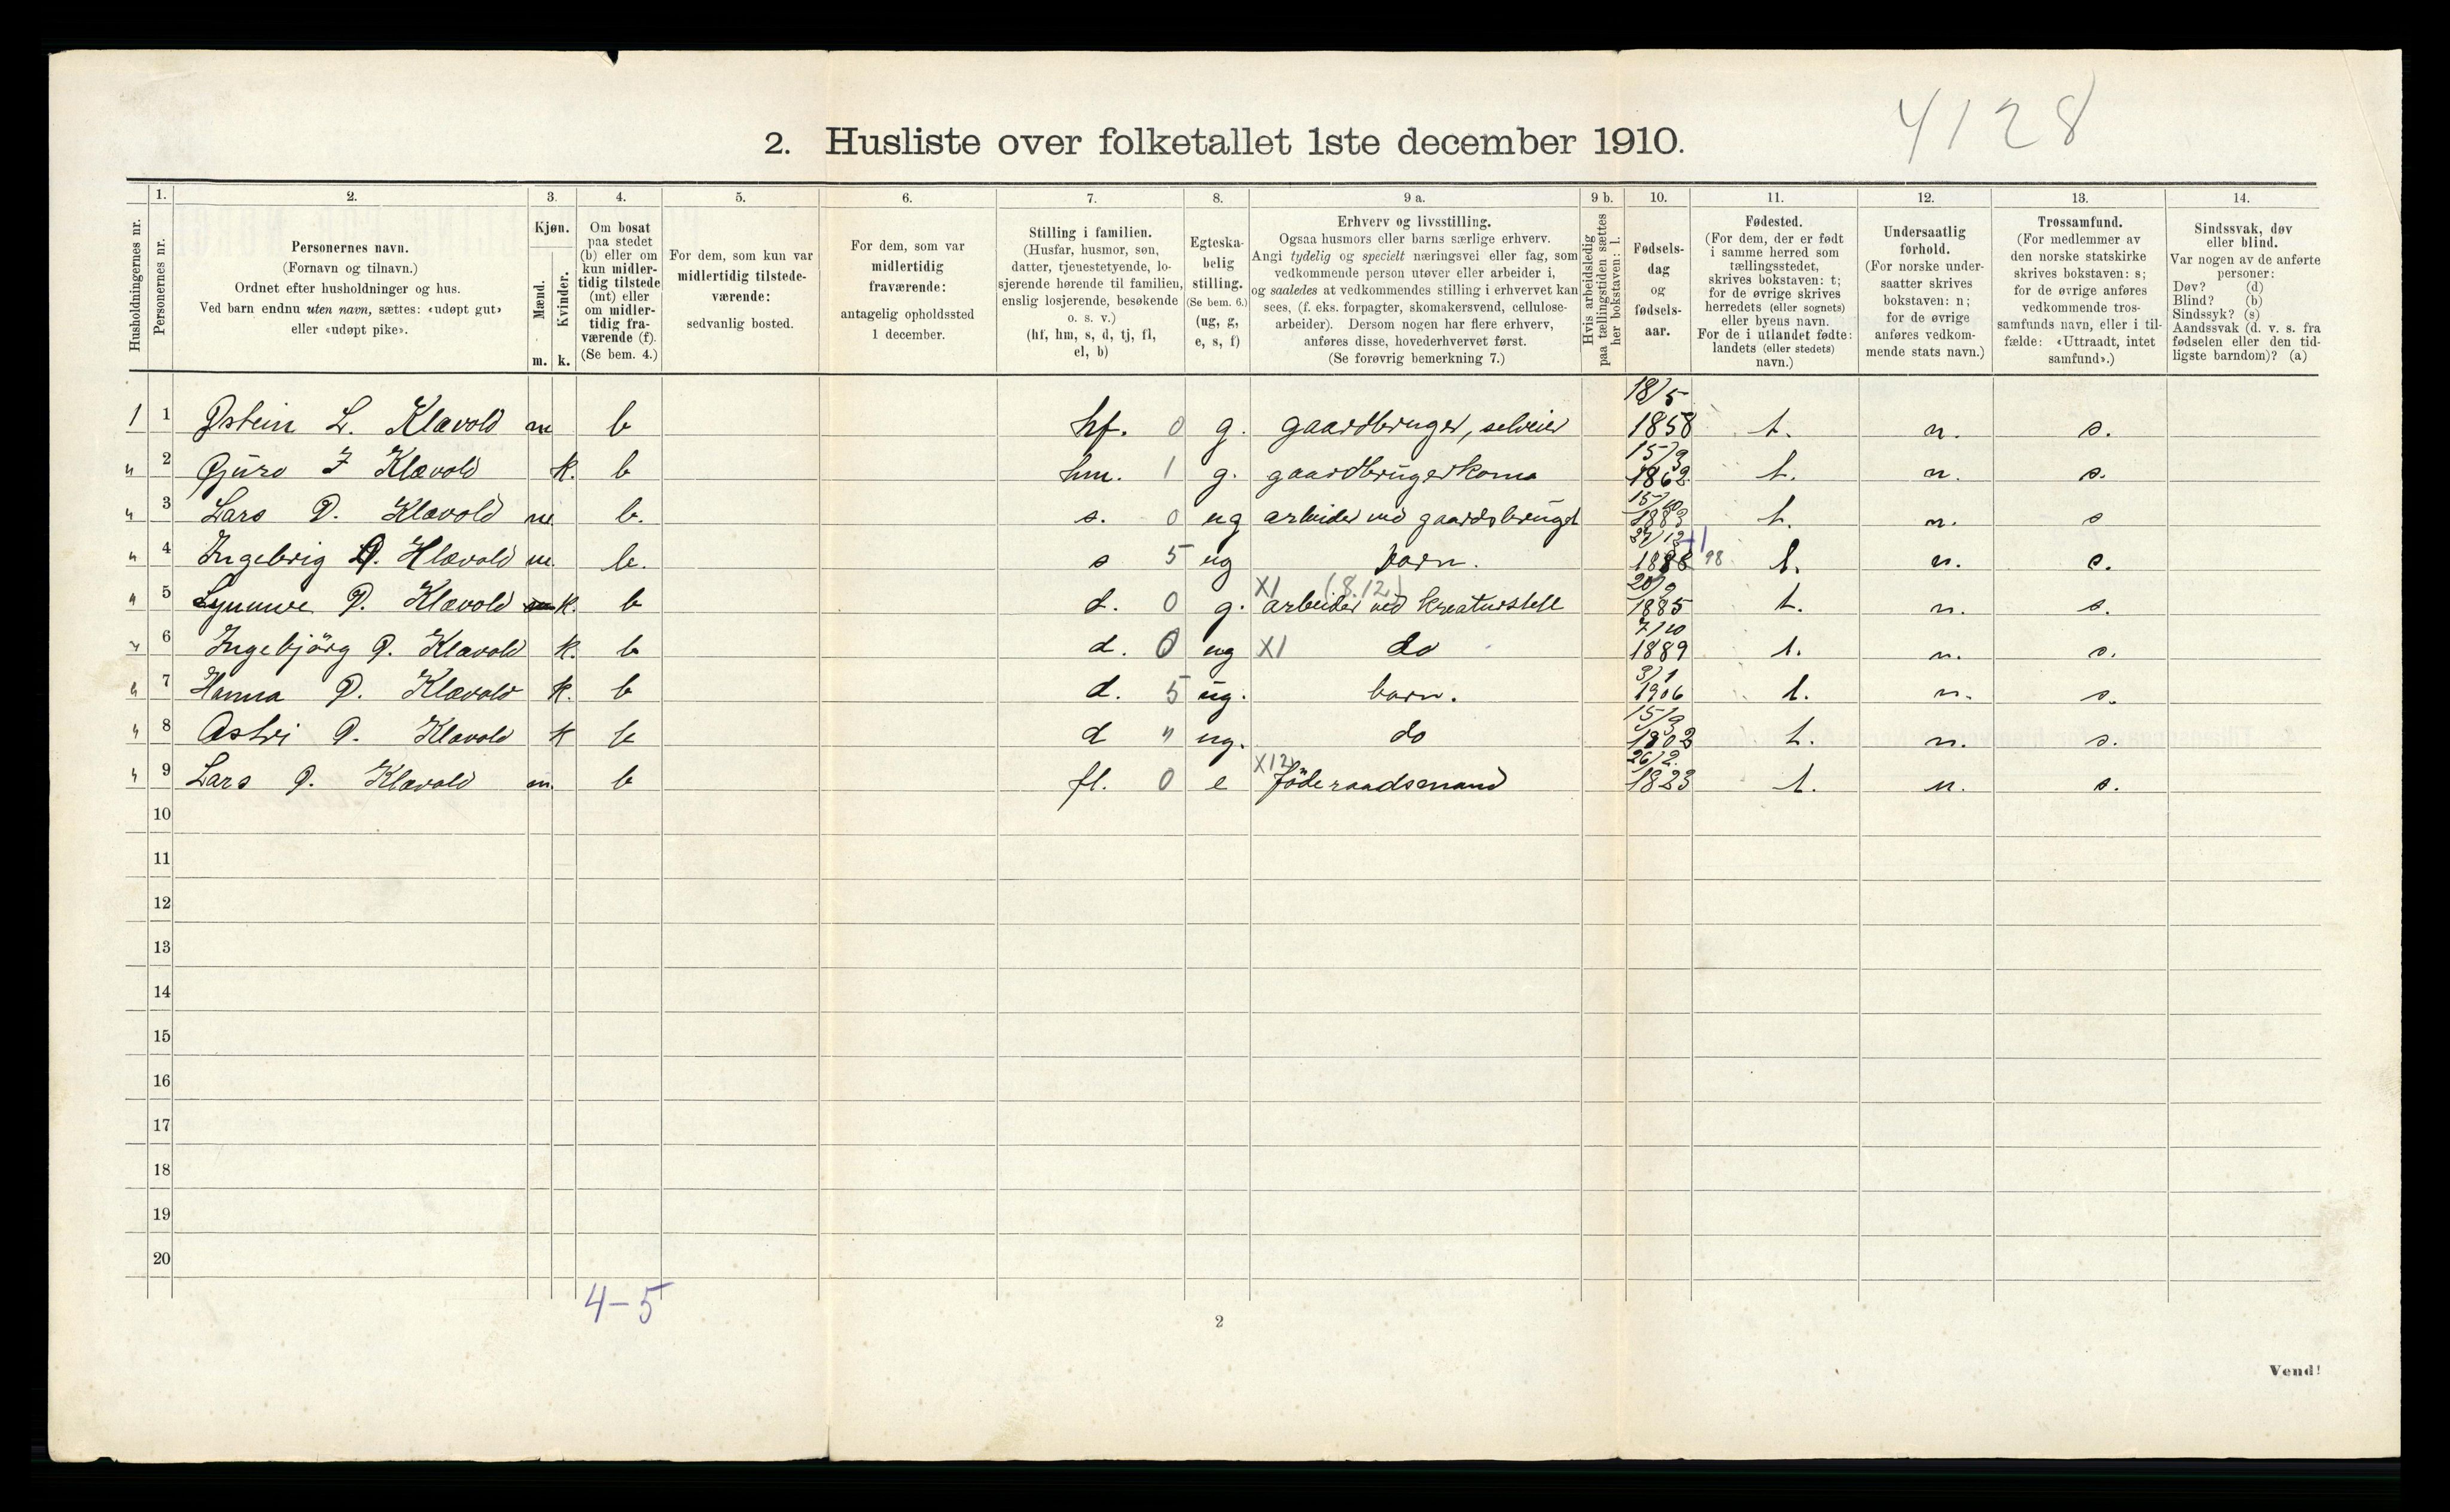 4128
2. Husliste over folketallet 1ste december 1910.
Husholdningernes nr.
1.
Personernes nr.
2.
Personernes navn.
(Fornavn og tilnavn.)
Ordnet efter husholdninger og hus.
Ved barn endnu uten navn, sættes: «udøpt gut»
eller «udøpt pike».
3.
Kjøn.
Mænd.
Kvinder.
m. k.
4.
Om bosat
paa stedet
(b) eller om
kun midler-
tidig tilstede
(mt) eller
om midler-
tidig fra-
værende (f).
(Se bem. 4.)
5.
For dem, som kun var
midlertidig tilstede-
værende:
sedvanlig bosted.
6.
For dem, som var
midlertidig
fraværende:
antagelig opholdssted
1 december.
7.
Stilling i familien.
(Husfar, husmor, søn,
datter, tjenestetyende, lo-
sjerende hørende til familien,
enslig losjerende, besøkende
o. s. v.)
(hf, hm, s, d, tj, fl,
el, b)
8.
Egteska-
belig
stilling.
(Se bem. 6.)
(ug, g,
e, s, f)
9 a.
Erhverv og livsstilling.
Ogsaa husmors eller barns særlige erhverv.
Angi tydelig og specielt næringsvei eller fag, som
vedkommende person utøver eller arbeider i,
og saaledes at vedkommendes stilling i erhvervet kan
sees, (f. eks. forpagter, skomakersvend, cellulose-
arbeider). Dersom nogen har flere erhverv,
anføres disse, hovederhvervet først.
(Se forøvrig bemerkning 7.)
9 b.
Hvis arbeidsledig
paa tællingstiden sættes
her bokstaven: l.
10.
Fødsels-
dag
og
fødsels-
aar.
11.
Fødested.
(For dem, der er født
i samme herred som
tællingsstedet,
skrives bokstaven: t;
for de øvrige skrives
herredets (eller sognets)
eller byens navn.
For de i utlandet fødte:
landets (eller stedets)
navn.)
12.
Undersaatlig
forhold.
(For norske under-
saatter skrives
bokstaven: n;
for de øvrige
anføres vedkom-
mende stats navn.)
13.
Trossamfund.
(For medlemmer av
den norske statskirke
skrives bokstaven: s;
for de øvrige anføres
vedkommende tros-
samfunds navn, eller i til-
fælde: «Uttraadt, intet
samfund».)
14.
Sindssvak, døv
eller blind.
Var nogen av de anførte
personer:
Døv? (d)
Blind? (b)
Sindssyk? (s)
Aandssvak (d. v. s. fra
fødselen eller den tid-
ligste barndom)? (a)
1 1 Østein L. Klævold m b hf. 0 g. gaardbruger, selveier 18/5 1858 t. n. s.
" 2 Guro Klævold k. b hm. 1 g. gaardbrugerkona 15/9 1862 t. n. s.
" 3 Lars Ø. Klævold m b. s. 0 ug arbeider ved gaardsbruget 15/10 1883 t. n. s
" 4 Ingebrig Ø. Klævold m. b. s 5 ug barn. 1898 98 t. n. s.
" 5 Ø. Klævold k. b d. 0 g. X1 (8.12) arbeider ved kreaturstell 20/9 1885 t. n. s.
" 6 Ingebjörg Ø. Klævold k. b d. 0 ug X1 do 7/10 1889 t. n. s.
" 7 Hanna Ø. Klævold k. b d. 5 ug. barn. 3/1 1906 t. n. s.
" 8 Astri Ø. Klævold k b d " ug. do 15/9 1902 t. n. s.
" 9 Lars Ø. Klævold m. b fl. 0 e X12 föderaadsmand 26/2. 1823 t. n. s.
10
11
12
13
14
15
16
17
18
19
20
4-5
2
Vend!